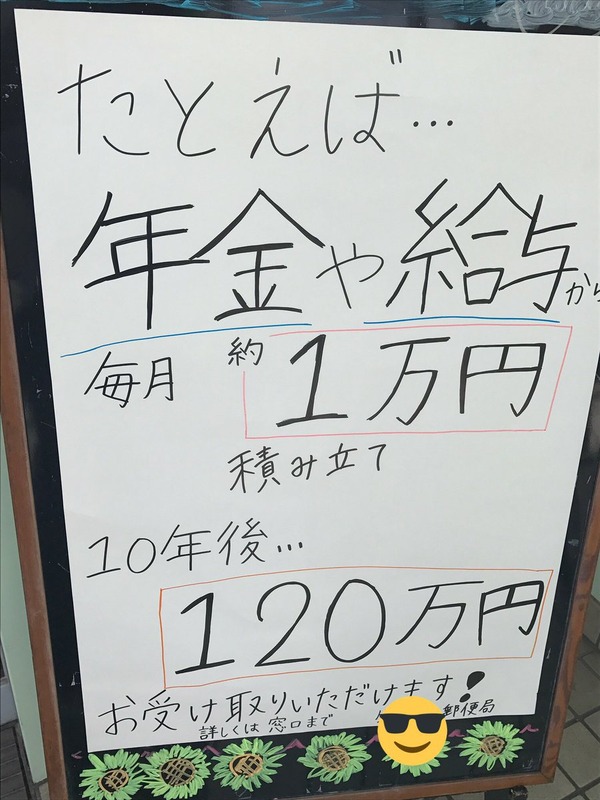 たとえば…
年金や給与から
毎月 約 1万円
積み立て
10年後…
120万円
お受け取りいただけます!
詳しくは窓口まで
郵便局